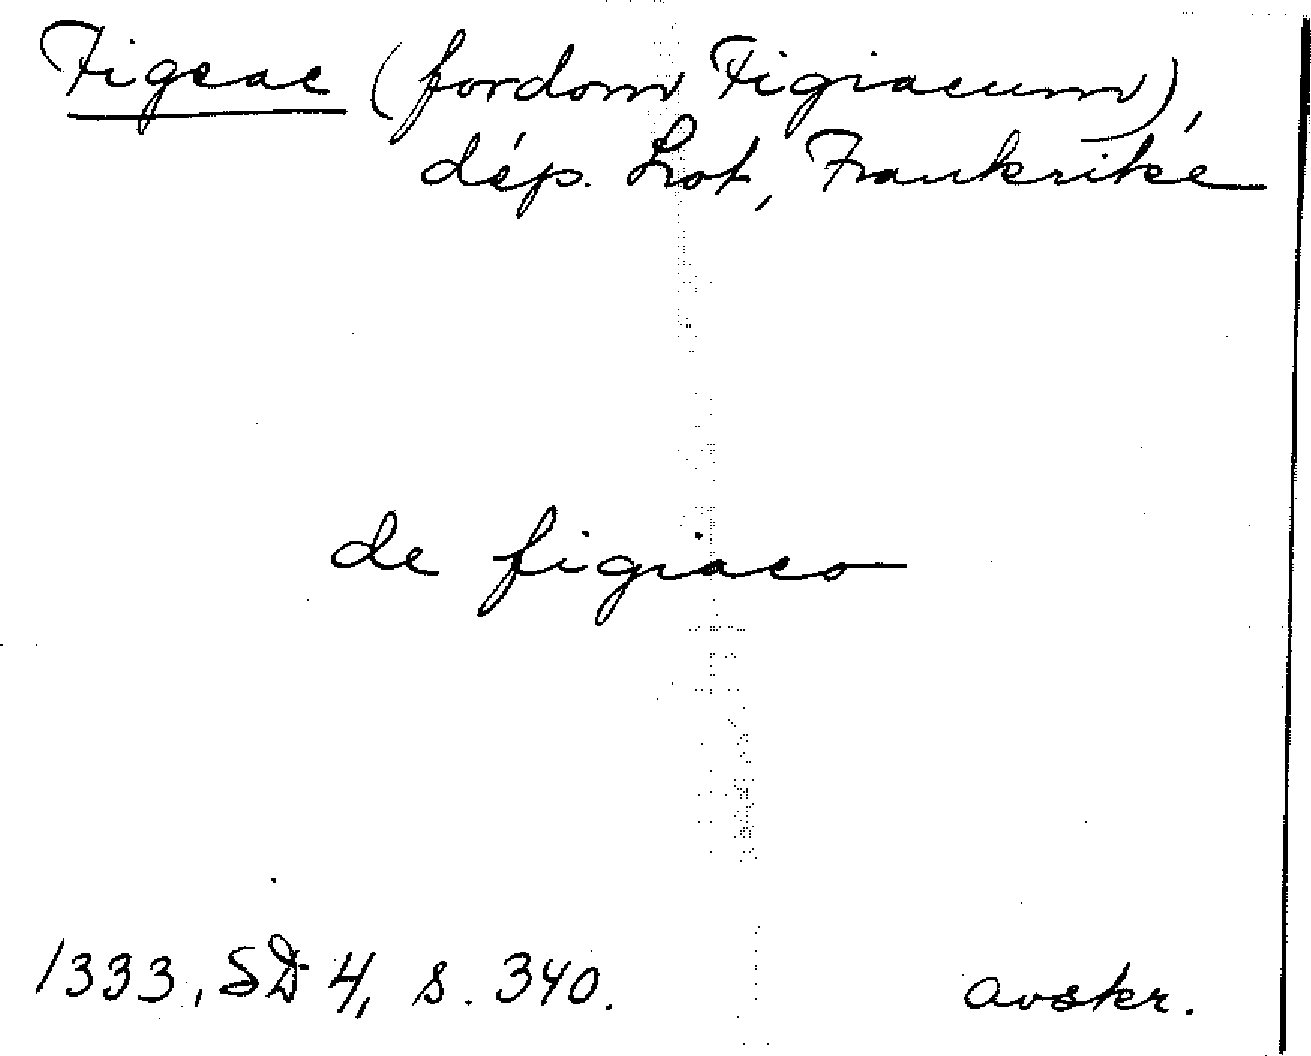 Figeac (fordom Figiacum),
dép. Lot, Frankrike
de figiaco
1333, SD 4, s. 340. avskr.